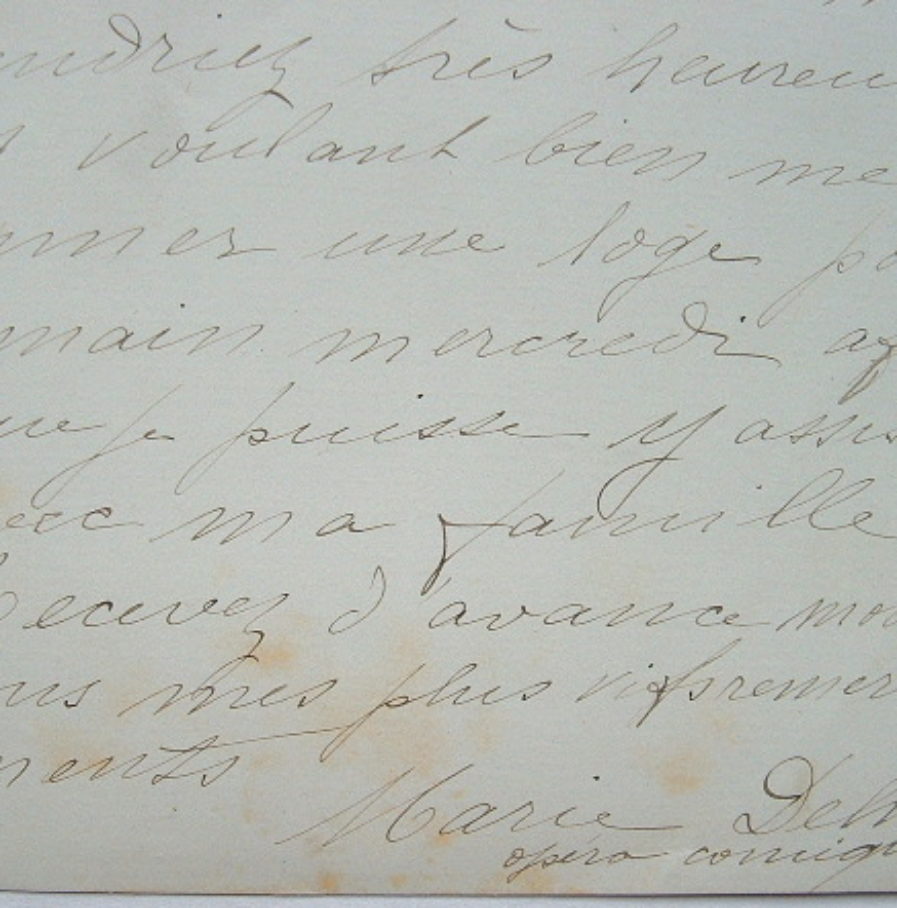 endriez très heureu
voulant bien me
nner une loge po
main mercredi af
ue je puisse y assis
vec ma famille
Recevez d'avance mo
us mes plus vifs remer
ments
Marie Delh
opéra comiqu